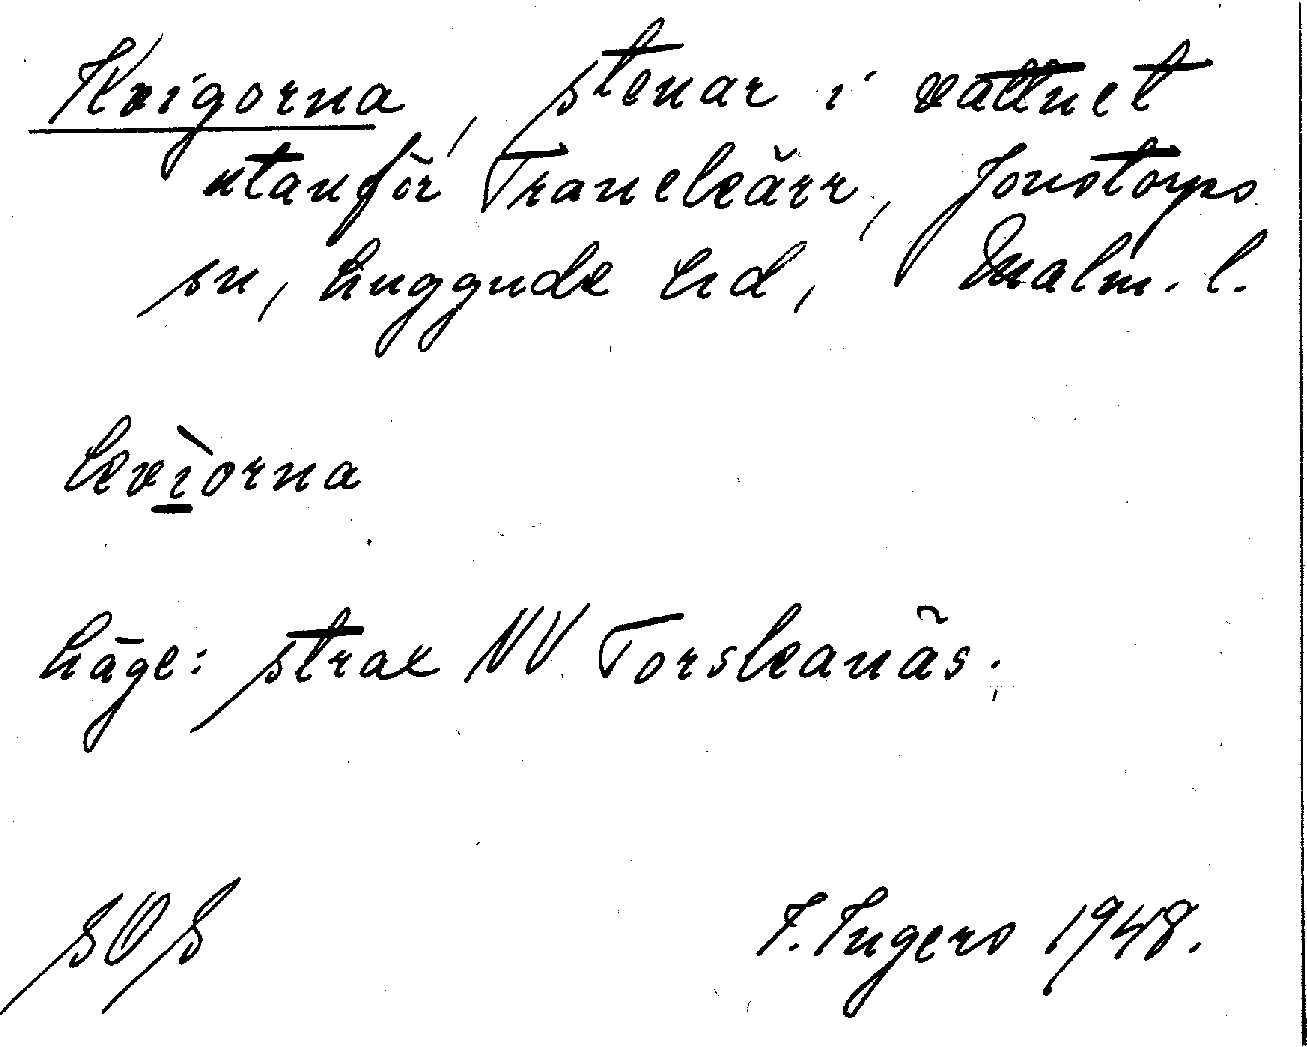 Kvigorna, stenar i vattnet
utanför Tranekärr, Jonstorps
sn, Luggude hd, Malm. l.
kvìorna
Läge: strax NV Torskanäs.
SOS
F. Ingers 1948.